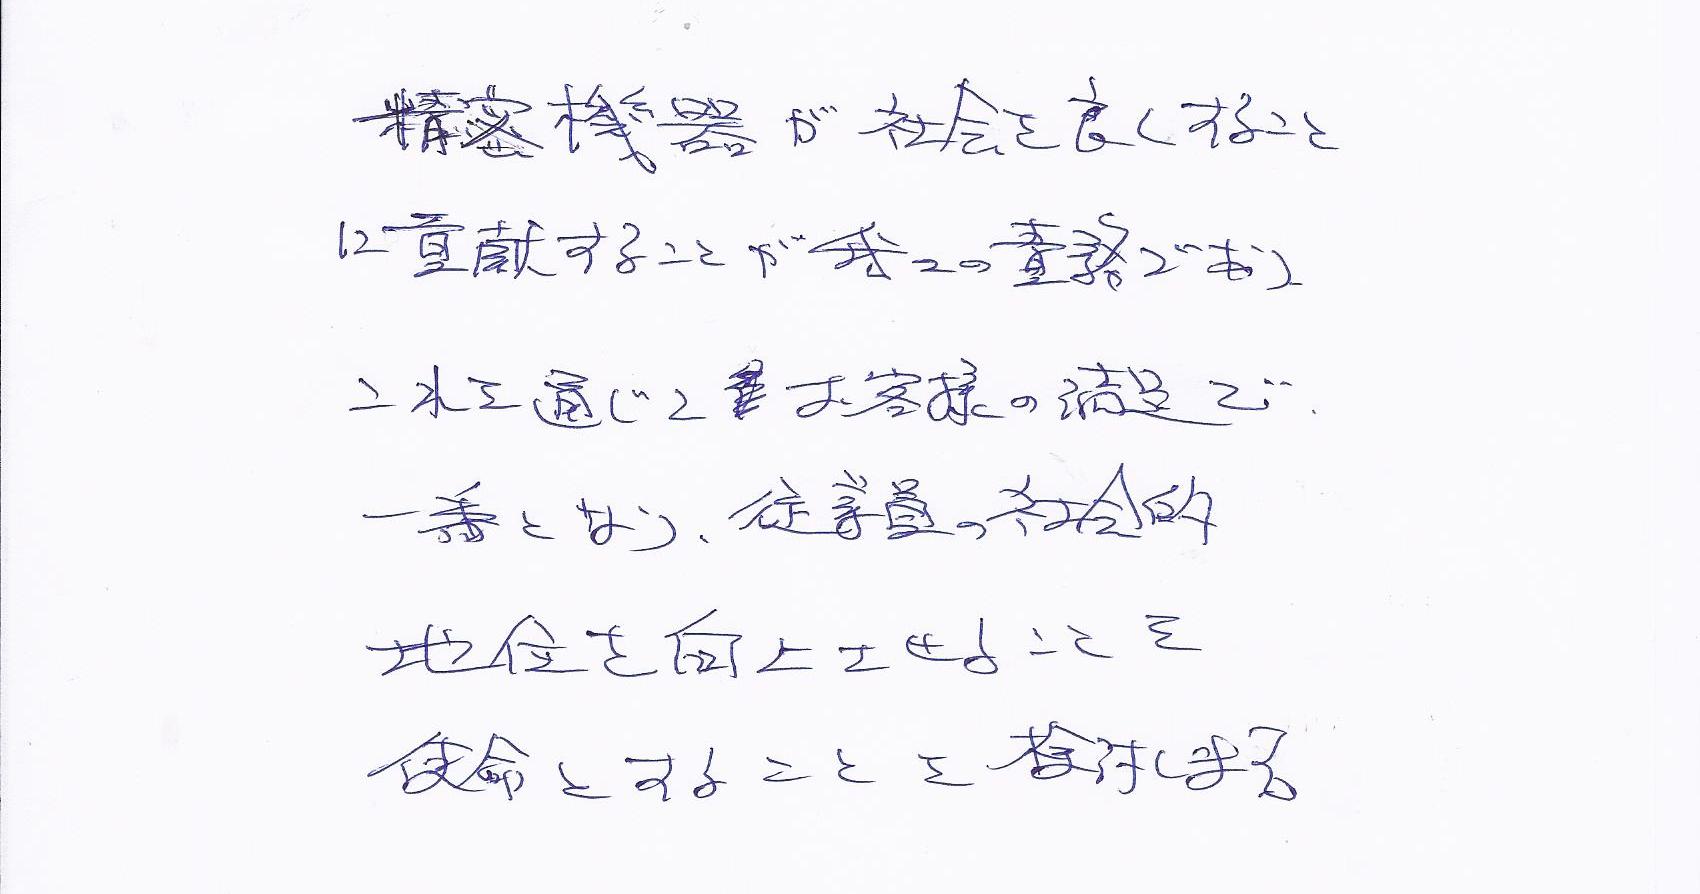 精密機器が社会を良くすること
に貢献することが我々の責務であり
これを通じてお客様の満足で
一番となり、従業員の社会的
地位を向上させることを
使命とすることを検討します